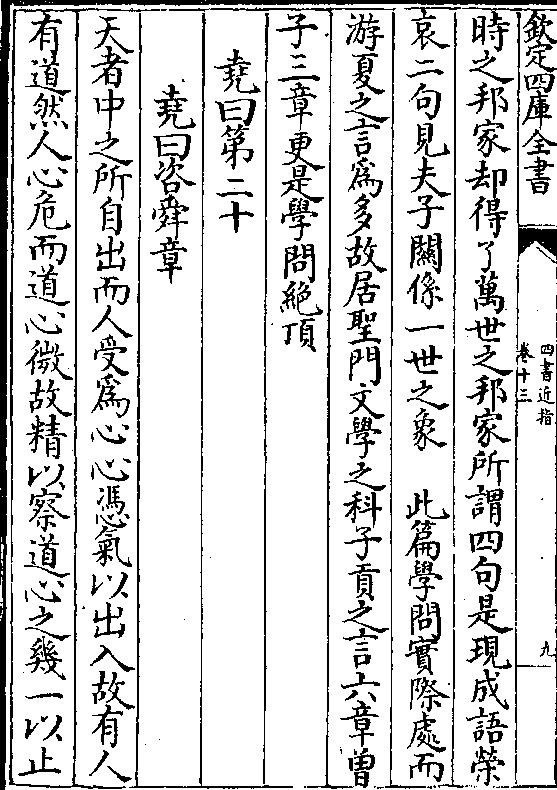 欽定四庫全書
四書近指
卷十三
九
時之邦家却得了萬世之邦家所謂四句是現成語榮
哀二句見夫子關係一世之象　此篇學問實際處而
游夏之言爲多故居聖門文學之科子貢之言六章曾
子三章更是學問絶頂
堯曰第二十
堯曰咨舜章
天者中之所自出而人受爲心心憑氣以出入故有人
有道然人心危而道心微故精以察道心之幾一以止